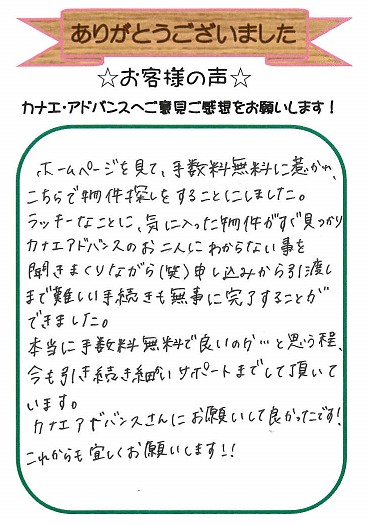 ありがとうございました
☆お客様の声☆
カナエ・アドバンスへご意見ご感想をお願いします！
ホームページを見て、手数料無料に惹かれ、
こちらで物件探しをすることにしました。
ラッキーなことに、気に入った物件がすぐ見つかり
カナエアドバンスのお二人にわからない事を
聞きまくりながら(笑)申し込みから引渡し
まで難しい手続きも無事に完了することが
できました。
本当に手数料無料で良いのか…と思う程、
今も引き続き細かいサポートまでして頂いて
います。
カナエアドバンスさんにお願いして良かったです！
これからも宜しくお願いします!!